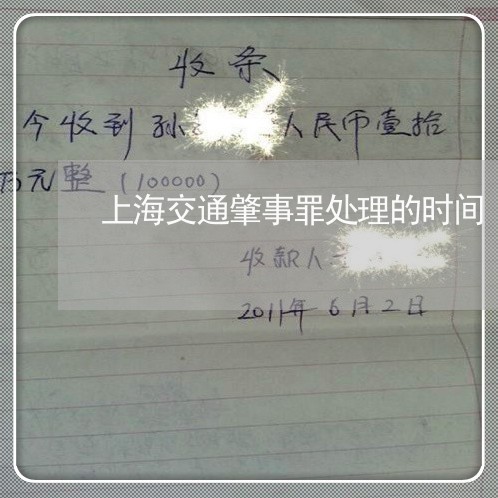 收条
今收到孙 人民币壹拾
万元整（100000）
上海交通肇事罪处理的时间
收款人
2011年6月2日